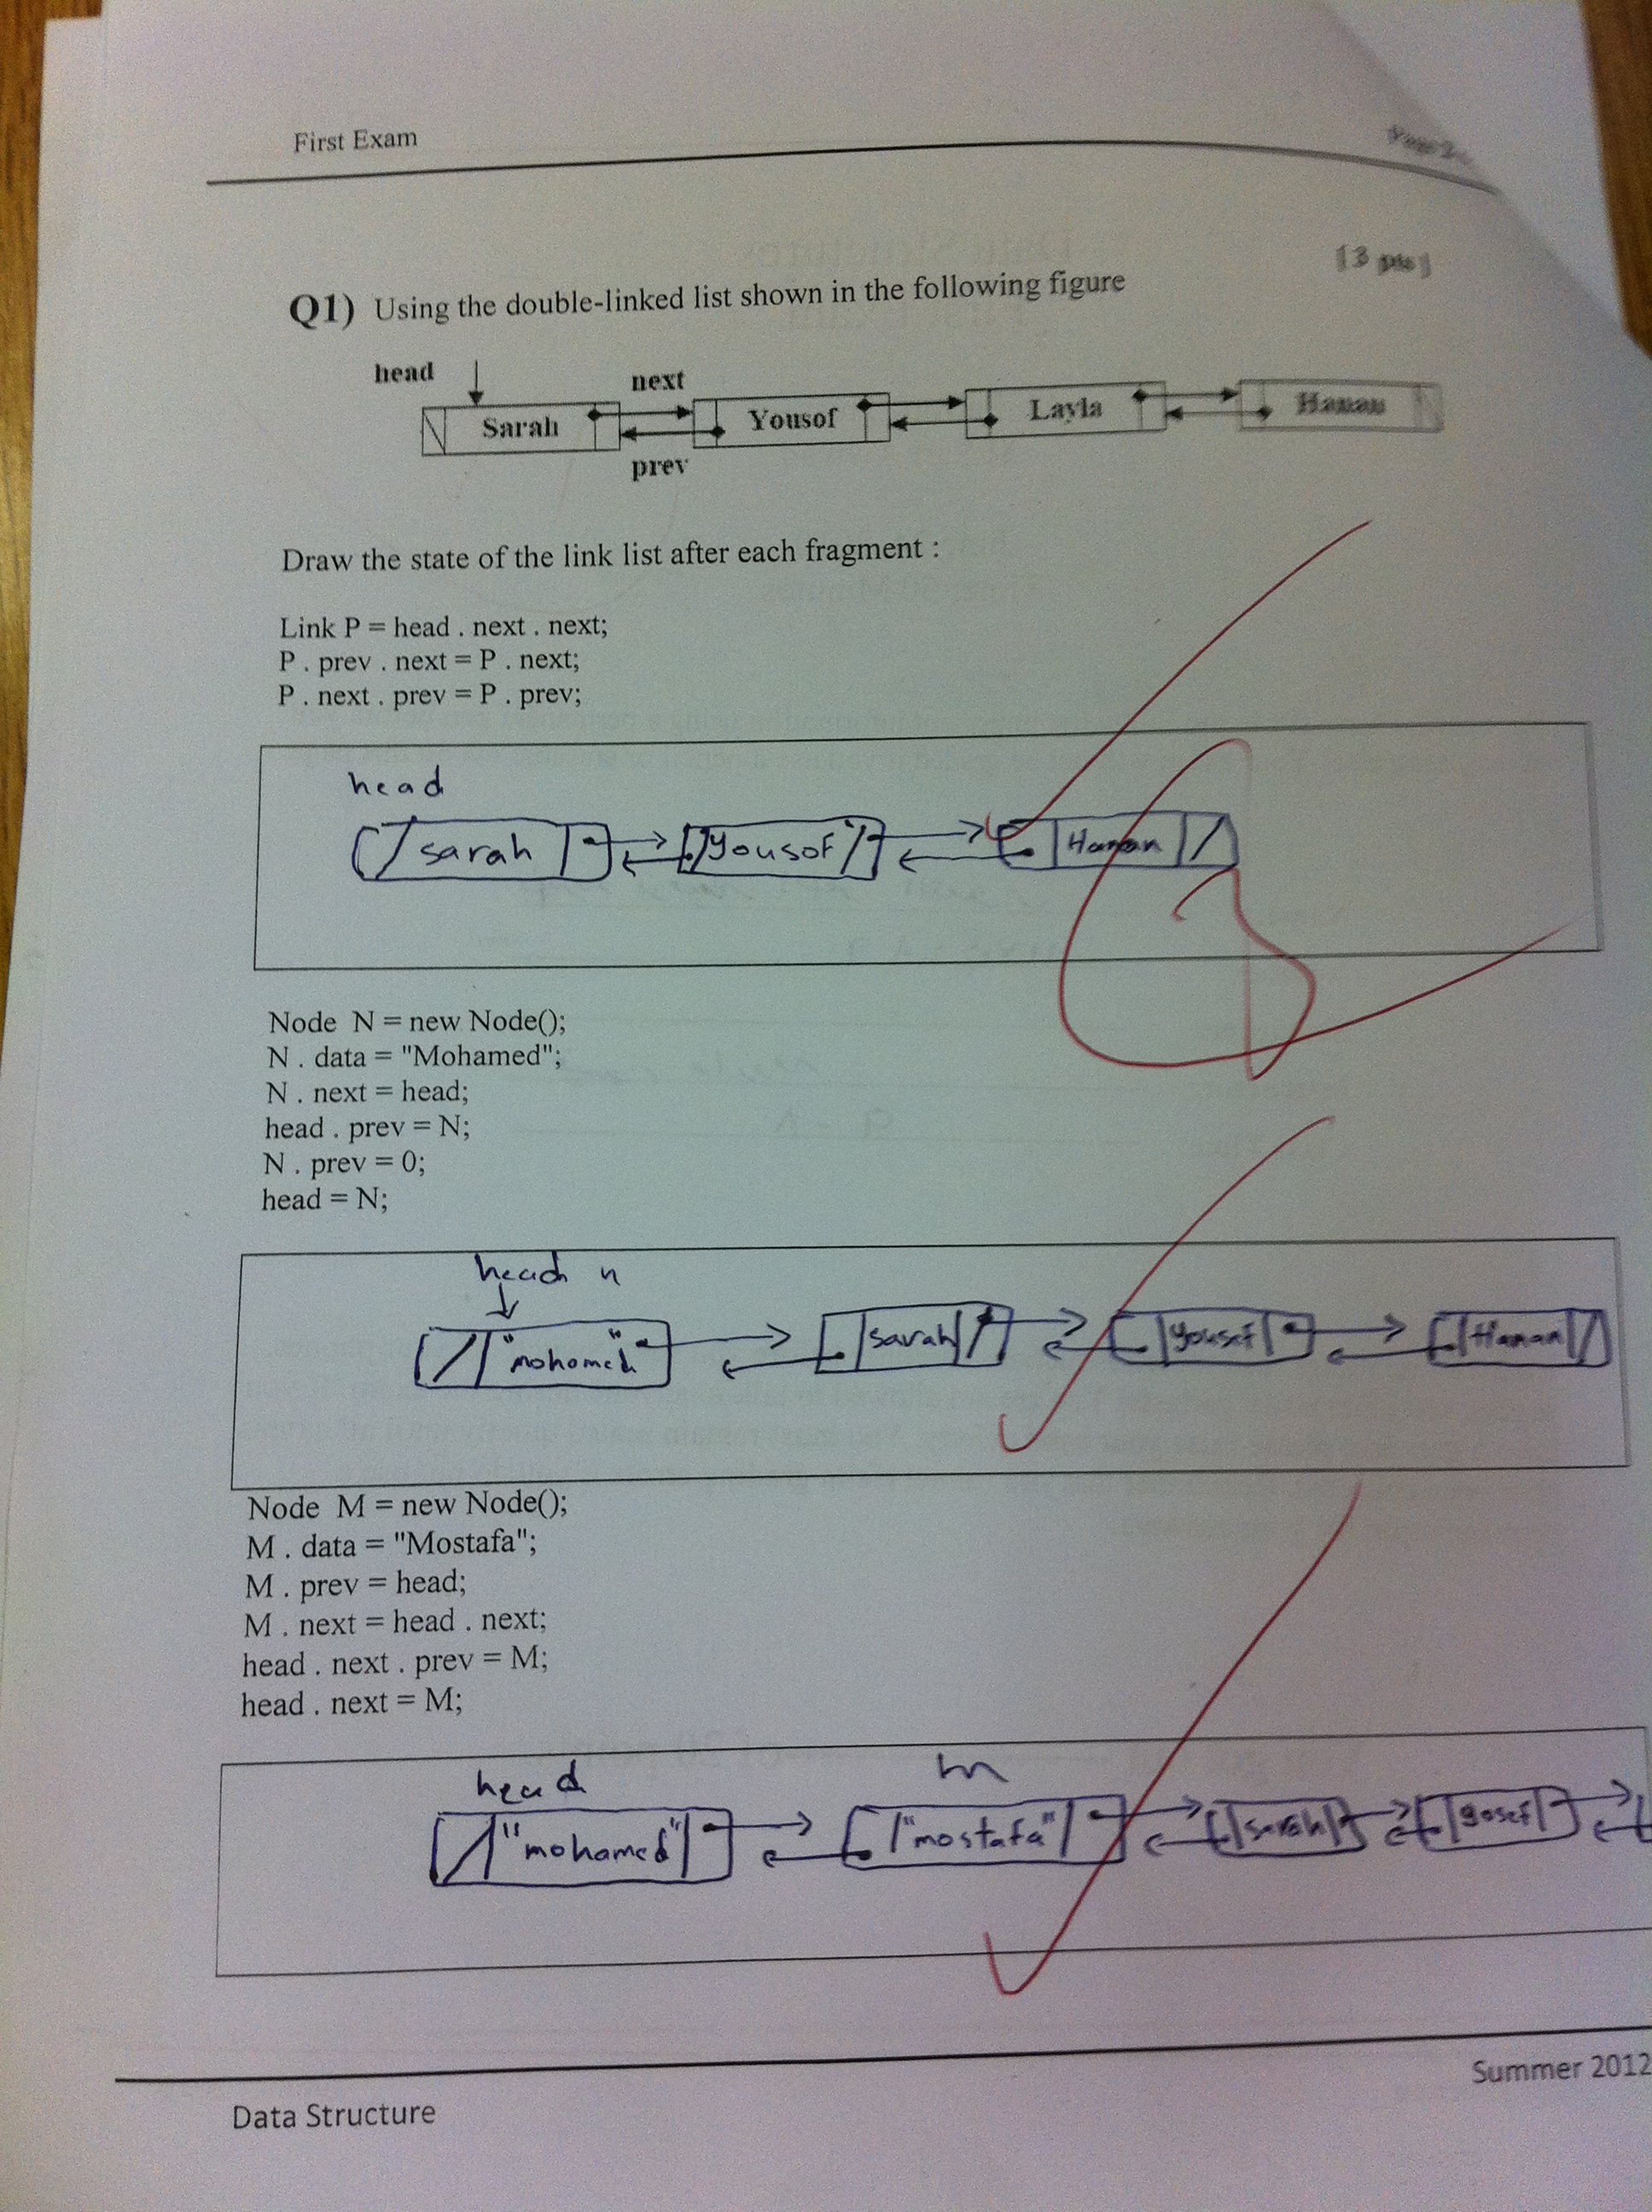 First Exam
[3 pts]
Q1) Using the double-linked list shown in the following figure
head
next
Sarah Yousof Layla Hanan
prev
Draw the state of the link list after each fragment :
Link P = head . next . next;
P . prev . next = P . next;
P . next . prev = P . prev;
head
sarah yousof Hanan
Node N = new Node();
N . data = "Mohamed";
N . next = head;
head . prev = N;
N . prev = 0;
head = N;
head n
"mohamed" sarah yousef Hanan
Node M = new Node();
M . data = "Mostafa";
M . prev = head;
M . next = head . next;
head . next . prev = M;
head . next = M;
head m
"mohamed" "mostafa" sarah yosef
Summer 2012
Data Structure